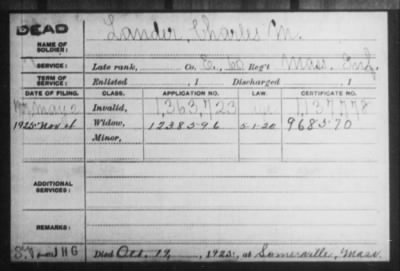 DEAD
NAME OF SOLDIER: Lander, Charles M.
SERVICE: Late rank, Co. E, 60 Reg't Mass. Inf.
TERM OF SERVICE: Enlisted , 1 Discharged , 1
DATE OF FILING. CLASS. APPLICATION NO. LAW. CERTIFICATE NO.
May 2 Invalid, 1,363,723 1,137,778
1925 Nov Widow, 1238596 5-1-20 968570
Minor,
ADDITIONAL SERVICES:
REMARKS:
JHG Died Oct. 19, 1925, at Somerville, Mass.